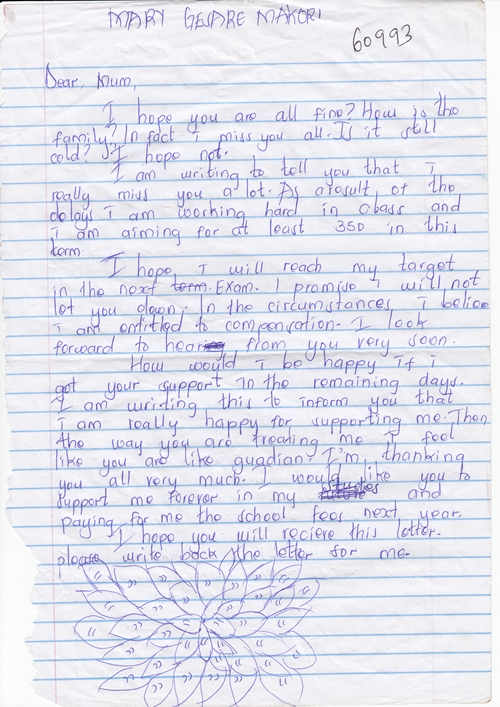 MARY GESARE MAKORI
60993
Dear, Mum,
I hope you are all fine? How is the
family? In fact i miss you all. Is it still
cold? I hope not.
I am writing to tell you that i
really miss you a lot. As aresult of the
delays i am working hard in class and
i am aiming for at least 350 in this
term
I hope i will reach my target
in the next term. Exam. I promise i will not
let you down. In the circumstances i believe
i am entitled to compensation. I look
forward to hear from you very soon.
How would i be happy if i
got your support in the remaining days.
I am writing this to inform you that
i am really happy for supporting me. Then
the way you are treating me i feel
like you are like guadian? I'm, thanking
you all very much. I would like you to
support me forever in my and
paying for me the school fees next year.
I hope you will recieve this letter.
please write back the letter for me.